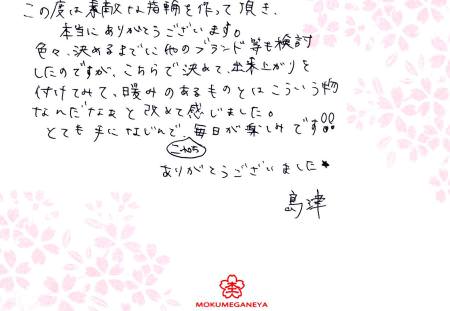 この度は素敵な指輪を作って頂き、
本当にありがとうございます。
色々、決めるまでに他のブランド等も検討
したのですが、こちらで決めて、出来上がりを
付けてみて、暖みのあるものとはこういう物
なんだなぁと改めて感じました。
とても手になじんで、毎日が楽しみです!!
こころ
ありがとうございました★
島津
MOKUMEGANEYA